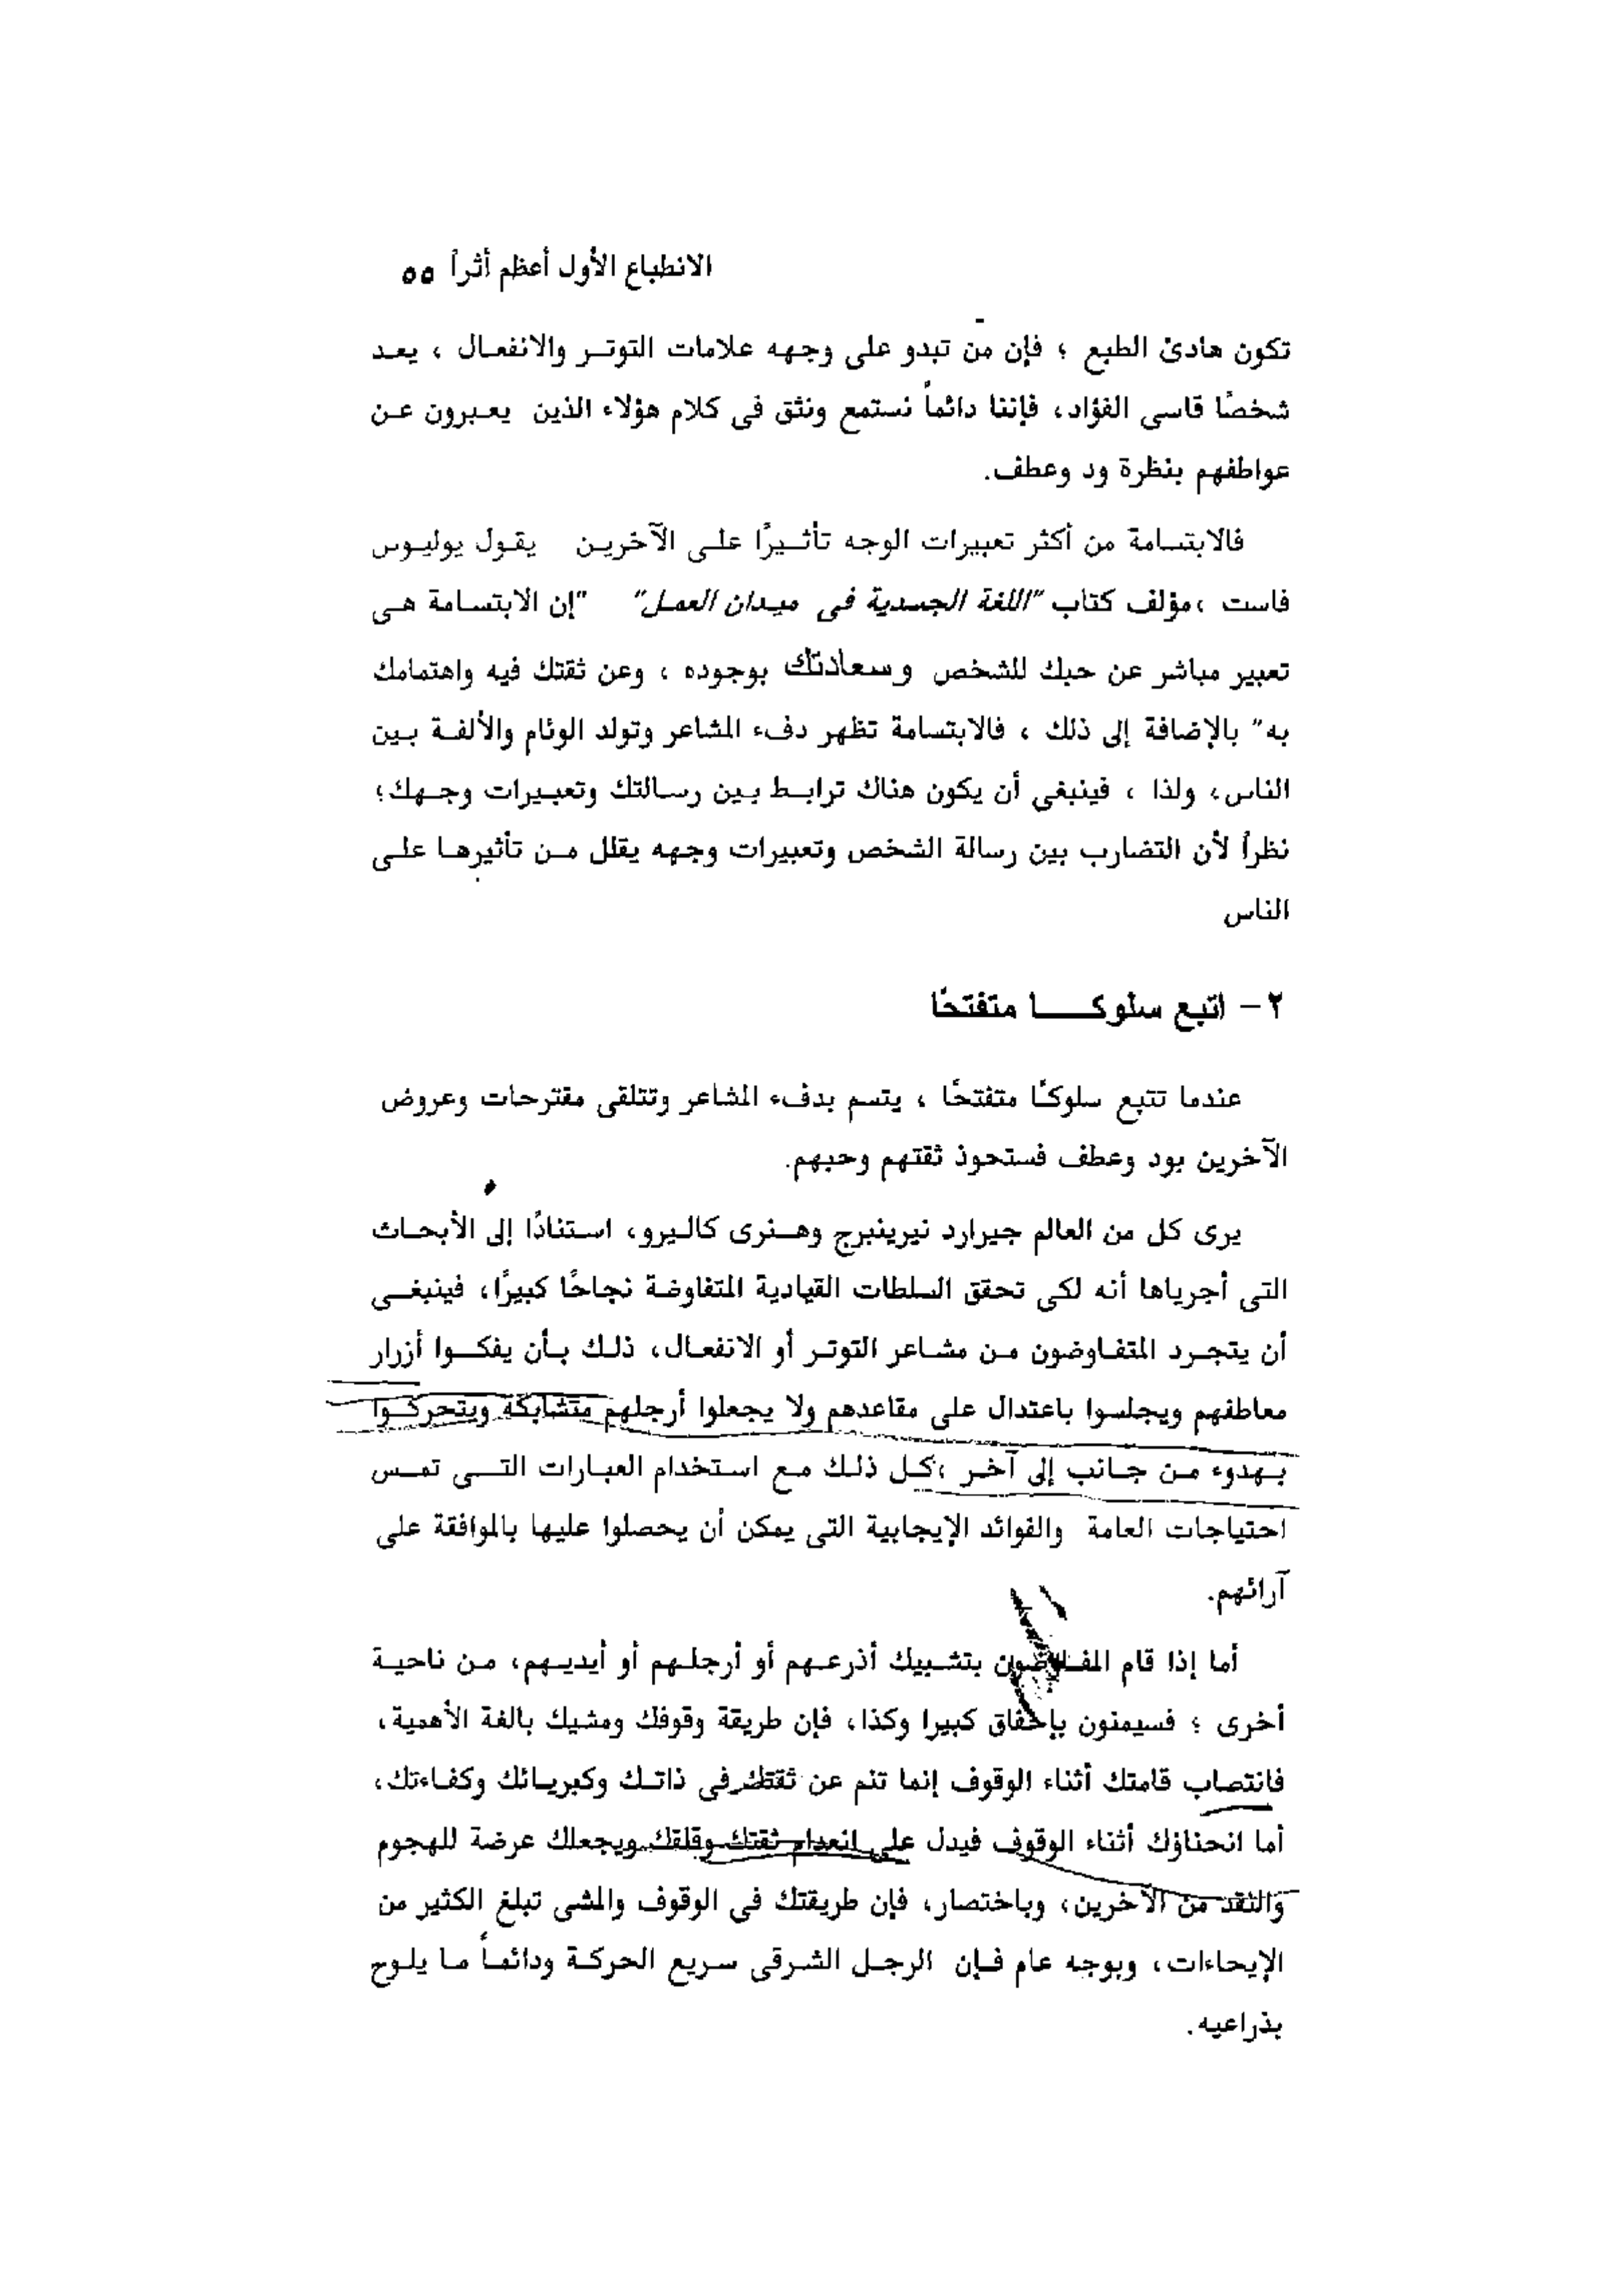 الانطباع الأول أعظم أثراً ٥٥
تكون هادئ الطبع ؛ فإن من تبدو على وجهه علامات التوتر والانفعال ، يعد
شخصًا قاسى الفؤاد، فإننا دائماً نستمع ونثق فى كلام هؤلاء الذين يعبرون عن
عواطفهم بنظرة ود وعطف.
فالابتسامة من أكثر تعبيرات الوجه تأثيرًا على الآخرين يقول يوليوس
فاست ،مؤلف كتاب "اللغة الجسدية فى ميدان العمل" "إن الابتسامة هى
تعبير مباشر عن حبك للشخص وسعادتك بوجوده ، وعن ثقتك فيه واهتمامك
به" بالإضافة إلى ذلك ، فالابتسامة تظهر دفء المشاعر وتولد الوئام والألفة بين
الناس، ولذا ، فينبغى أن يكون هناك ترابط بين رسالتك وتعبيرات وجهك؛
نظراً لأن التضارب بين رسالة الشخص وتعبيرات وجهه يقلل من تأثيرها على
الناس
٢- اتبع سلوكا متفتحًا
عندما تتبع سلوكًا متفتحًا ، يتسم بدفء المشاعر وتتلقى مقترحات وعروض
الآخرين بود وعطف فستحوذ ثقتهم وحبهم.
يرى كل من العالم جيرارد نيرينبرج وهنرى كاليرو، استنادًا إلى الأبحاث
التى أجرياها أنه لكى تحقق السلطات القيادية المتفاوضة نجاحًا كبيرًا، فينبغى
أن يتجرد المتفاوضون من مشاعر التوتر أو الانفعال، ذلك بأن يفكوا أزرار
معاطفهم ويجلسوا باعتدال على مقاعدهم ولا يجعلوا أرجلهم متشابكة ويتحركوا
بهدوء من جانب إلى آخر ،كل ذلك مع استخدام العبارات التى تمس
احتياجات العامة والفوائد الإيجابية التى يمكن أن يحصلوا عليها بالموافقة على
آرائهم.
أما إذا قام المفاوضون بتشبيك أذرعهم أو أرجلهم أو أيديهم، من ناحية
أخرى ؛ فسيمنون بإخفاق كبيرا وكذا، فإن طريقة وقوفك ومشيك بالغة الأهمية،
فانتصاب قامتك أثناء الوقوف إنما تنم عن ثقتك فى ذاتك وكبريائك وكفاءتك،
أما انحناؤك أثناء الوقوف فيدل على انعدام ثقتك وقلقك ويجعلك عرضة للهجوم
والنقد من الآخرين، وباختصار، فإن طريقتك فى الوقوف والمشى تبلغ الكثير من
الإيحاءات، وبوجه عام فإن الرجل الشرقى سريع الحركة ودائماً ما يلوح
بذراعيه.